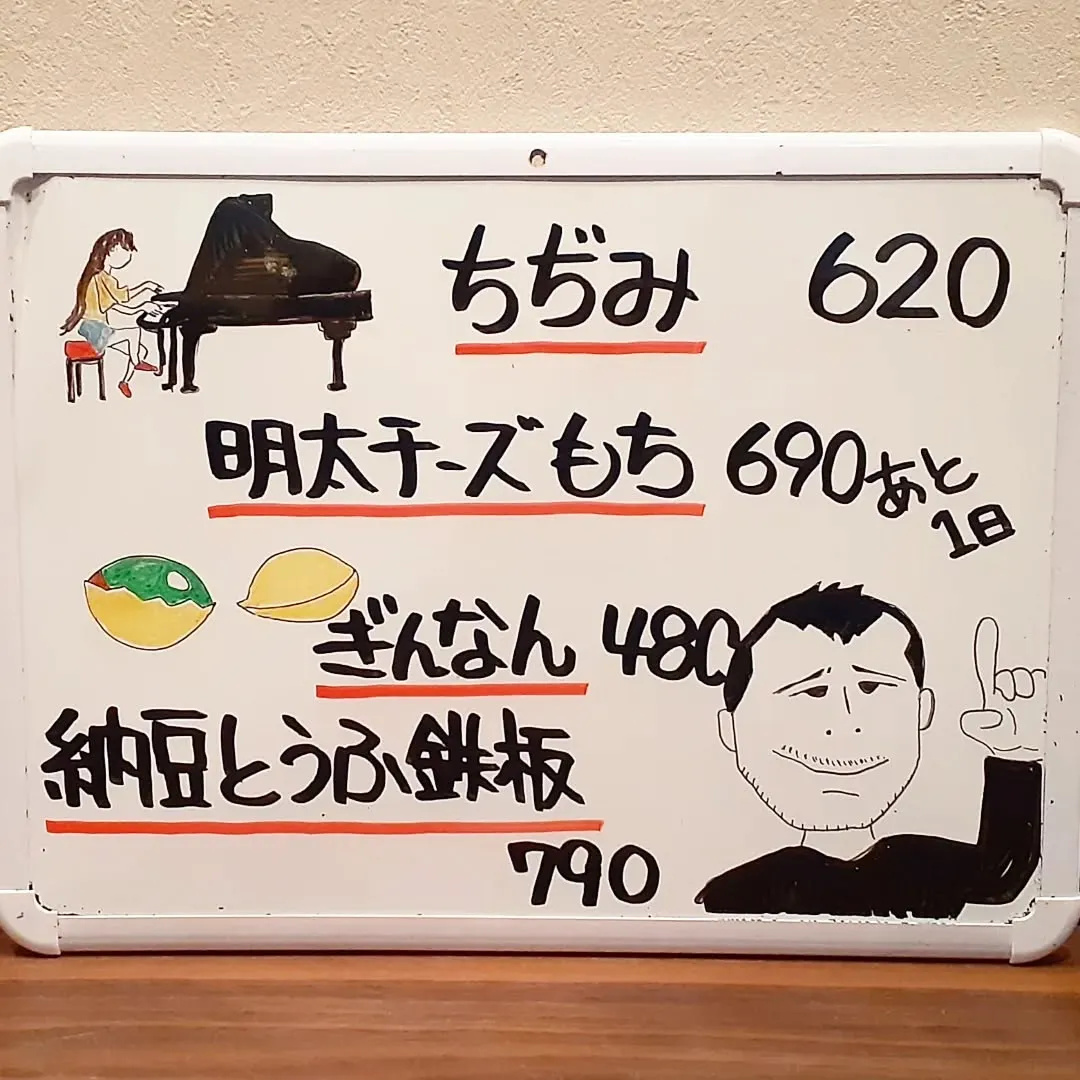 ちぢみ 620
明太チーズもち 690 あと
1日
ぎんなん 480
納豆とうふ鉄板
790